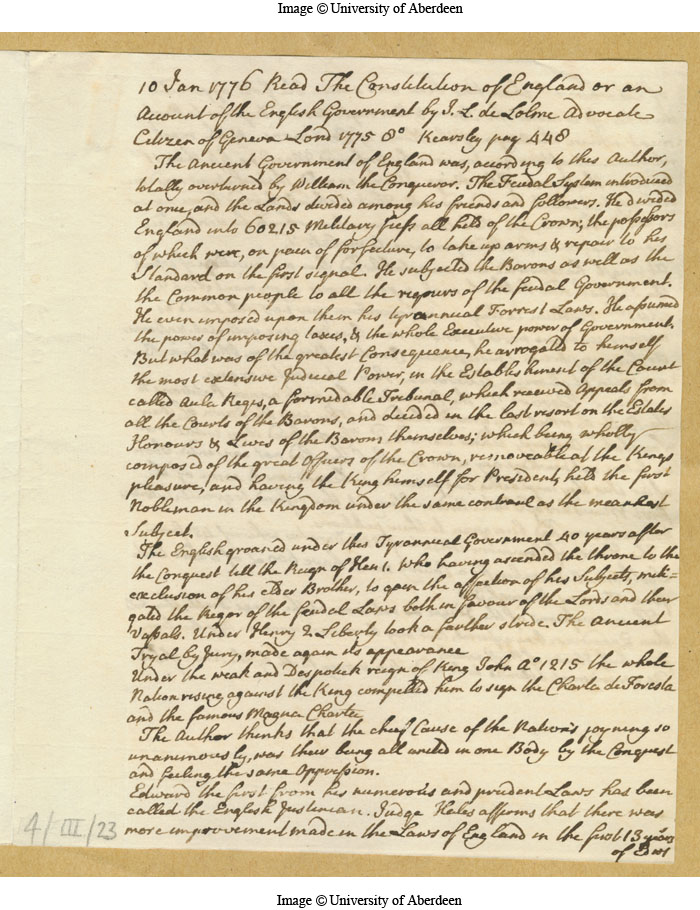 Image © University of Aberdeen
10 Jan 1776 Read The Constitution of England or an
Account of the English Government by J. L. de Lolme Advocate
Citizen of Geneva Lond 1775 8° Kearsley pag 448
The Ancient Government of England was, according to this Author,
totally overturned by William the Conqueror. The Feudal System introduced
at once, and the Lands divided among his friends and followers. He divided
England into 60215 Military fiefs all held of the Crown; the possessors
of which were, on pain of forfeiture, to take up arms & repair to his
Standard on the first signal. He subjected the Barons as well as the
the Common people to all the rigours of the feudal Government.
He even imposed upon them his tyrannual Forrest Laws. He assumed
the power of imposing taxes, & the whole Executive power of Government.
But what was of the greatest Consequence, he arrogated to himself
the most extensive Judicial Power, in the Establishment of the Court
called Aula Regis, a formidable Tribunal, which received Appeals from
all the Courts of the Barons, and decided in the last resort on the Estates
Honours & Lives of the Barons themselves; which being wholly
composed of the great Officers of the Crown, removeable at the Kings
pleasure, and having the King himself for President, held the first
Nobleman in the Kingdom under the same controul as the meanest
Subject.
The English groaned under this Tyrannical Government 40 years after
the Conquest till the Reign of Hen 1. Who having ascended the throne to the
exclusion of his elder Brother, to gain the affection of his Subjects, miti=
gated the Rigor of the feudal Laws both in favour of the Lords and their
Vassals. Under Henry 2 Liberty took a farther stride. The Ancient
Tryal by Jury, made again its appearance
Under the weak and Despotick reign of King John A° 1215 the whole
Nation rising against the King compelled him to sign the Charta de Foresta
and the famous Magna Charta
The Author thinks that the cheif Cause of the Nation's joyning so
unanimously, was their being all united in one Body by the Conquest
and feeling the same Oppression.
Edward the first from his numerous and prudent Laws has been
called the English Justinian. Judge Hales affirms that there was
more improvement made in the Laws of England in the first 13 years
of Ed
4/III/23
Image © University of Aberdeen